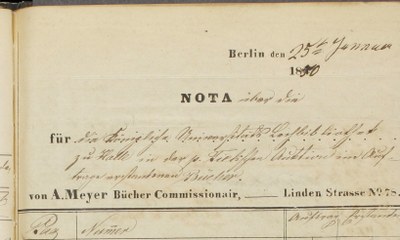 Berlin den 25ten Januar
1850
NOTA über die
für die Königliche Universitäts Bibliothek
zu Halle in der p. Tieckschen Auktion im Auf-
trage erstandenen Bücher.
von A. Meyer Bücher Commissionair, Linden Strasse No. 78.
Pag Numer